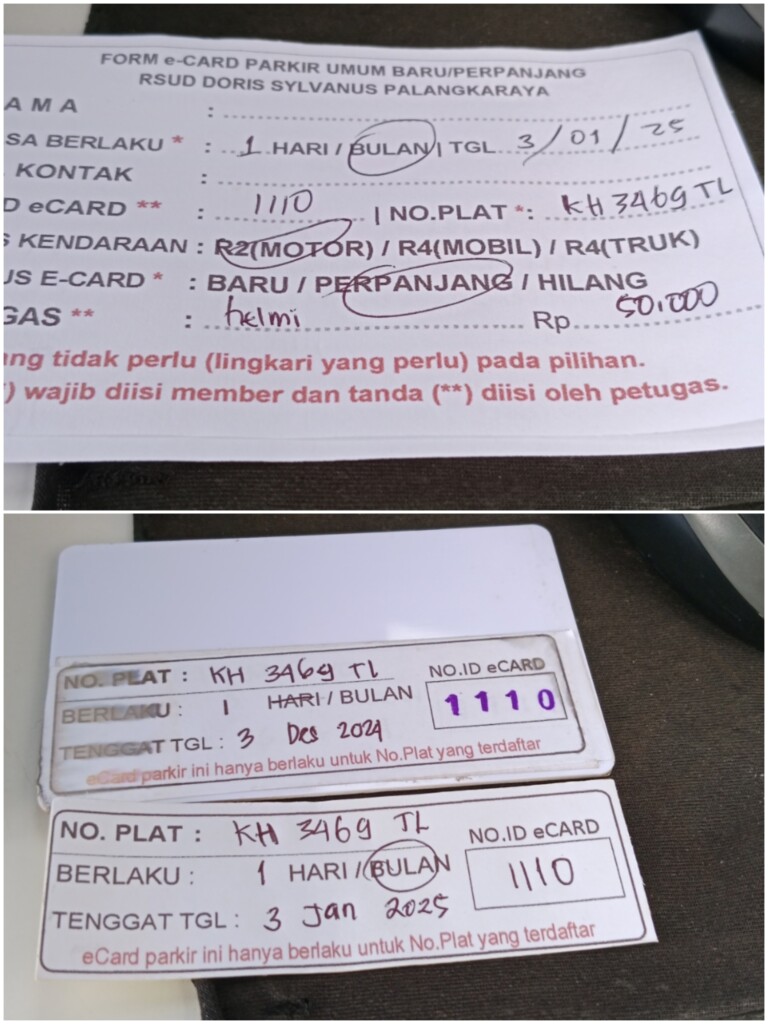 FORM e-CARD PARKIR UMUM BARU/PERPANJANG
RSUD DORIS SYLVANUS PALANGKARAYA
AMA :
SA BERLAKU * : 1 HARI / BULAN | TGL 3/01/25
KONTAK :
D eCARD ** : 1110 | NO.PLAT *: KH 3469 TL
S KENDARAAN : R2(MOTOR) / R4(MOBIL) / R4(TRUK)
US E-CARD * : BARU / PERPANJANG / HILANG
GAS ** : helmi Rp 50.000
ng tidak perlu (lingkari yang perlu) pada pilihan.
) wajib diisi member dan tanda (**) diisi oleh petugas.
NO. PLAT : KH 3469 TL NO.ID eCARD
BERLAKU : 1 HARI / BULAN 1110
TENGGAT TGL : 3 Des 2024
eCard parkir ini hanya berlaku untuk No.Plat yang terdaftar
NO. PLAT : KH 3469 TL NO.ID eCARD
BERLAKU : 1 HARI / BULAN 1110
TENGGAT TGL : 3 Jan 2025
eCard parkir ini hanya berlaku untuk No.Plat yang terdaftar